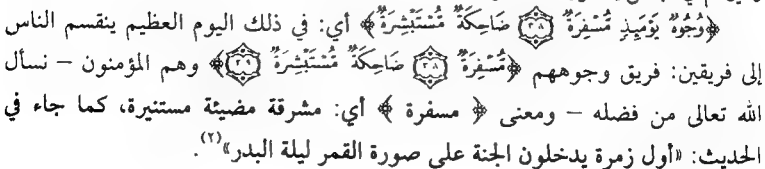 ﴿وُجُوهٌ يَوْمَئِذٍ مُّسْفِرَةٌ ﴿٣٨﴾ ضَاحِكَةٌ مُّسْتَبْشِرَةٌ﴾ أي: في ذلك اليوم العظيم ينقسم الناس
إلى فريقين: فريق وجوههم ﴿مُّسْفِرَةٌ ﴿٣٨﴾ ضَاحِكَةٌ مُّسْتَبْشِرَةٌ ﴿٣٩﴾﴾ وهم المؤمنون – نسأل
الله تعالى من فضله – ومعنى ﴿ مسفرة ﴾ أي: مشرقة مضيئة مستنيرة، كما جاء في
الحديث: «أول زمرة يدخلون الجنة على صورة القمر ليلة البدر»(٢).